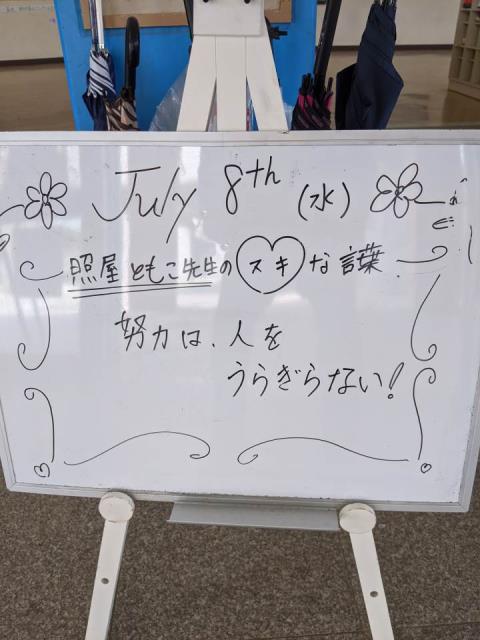 July 8th (水)
照屋ともこ先生のスキな言葉
努力は、人を
うらぎらない!